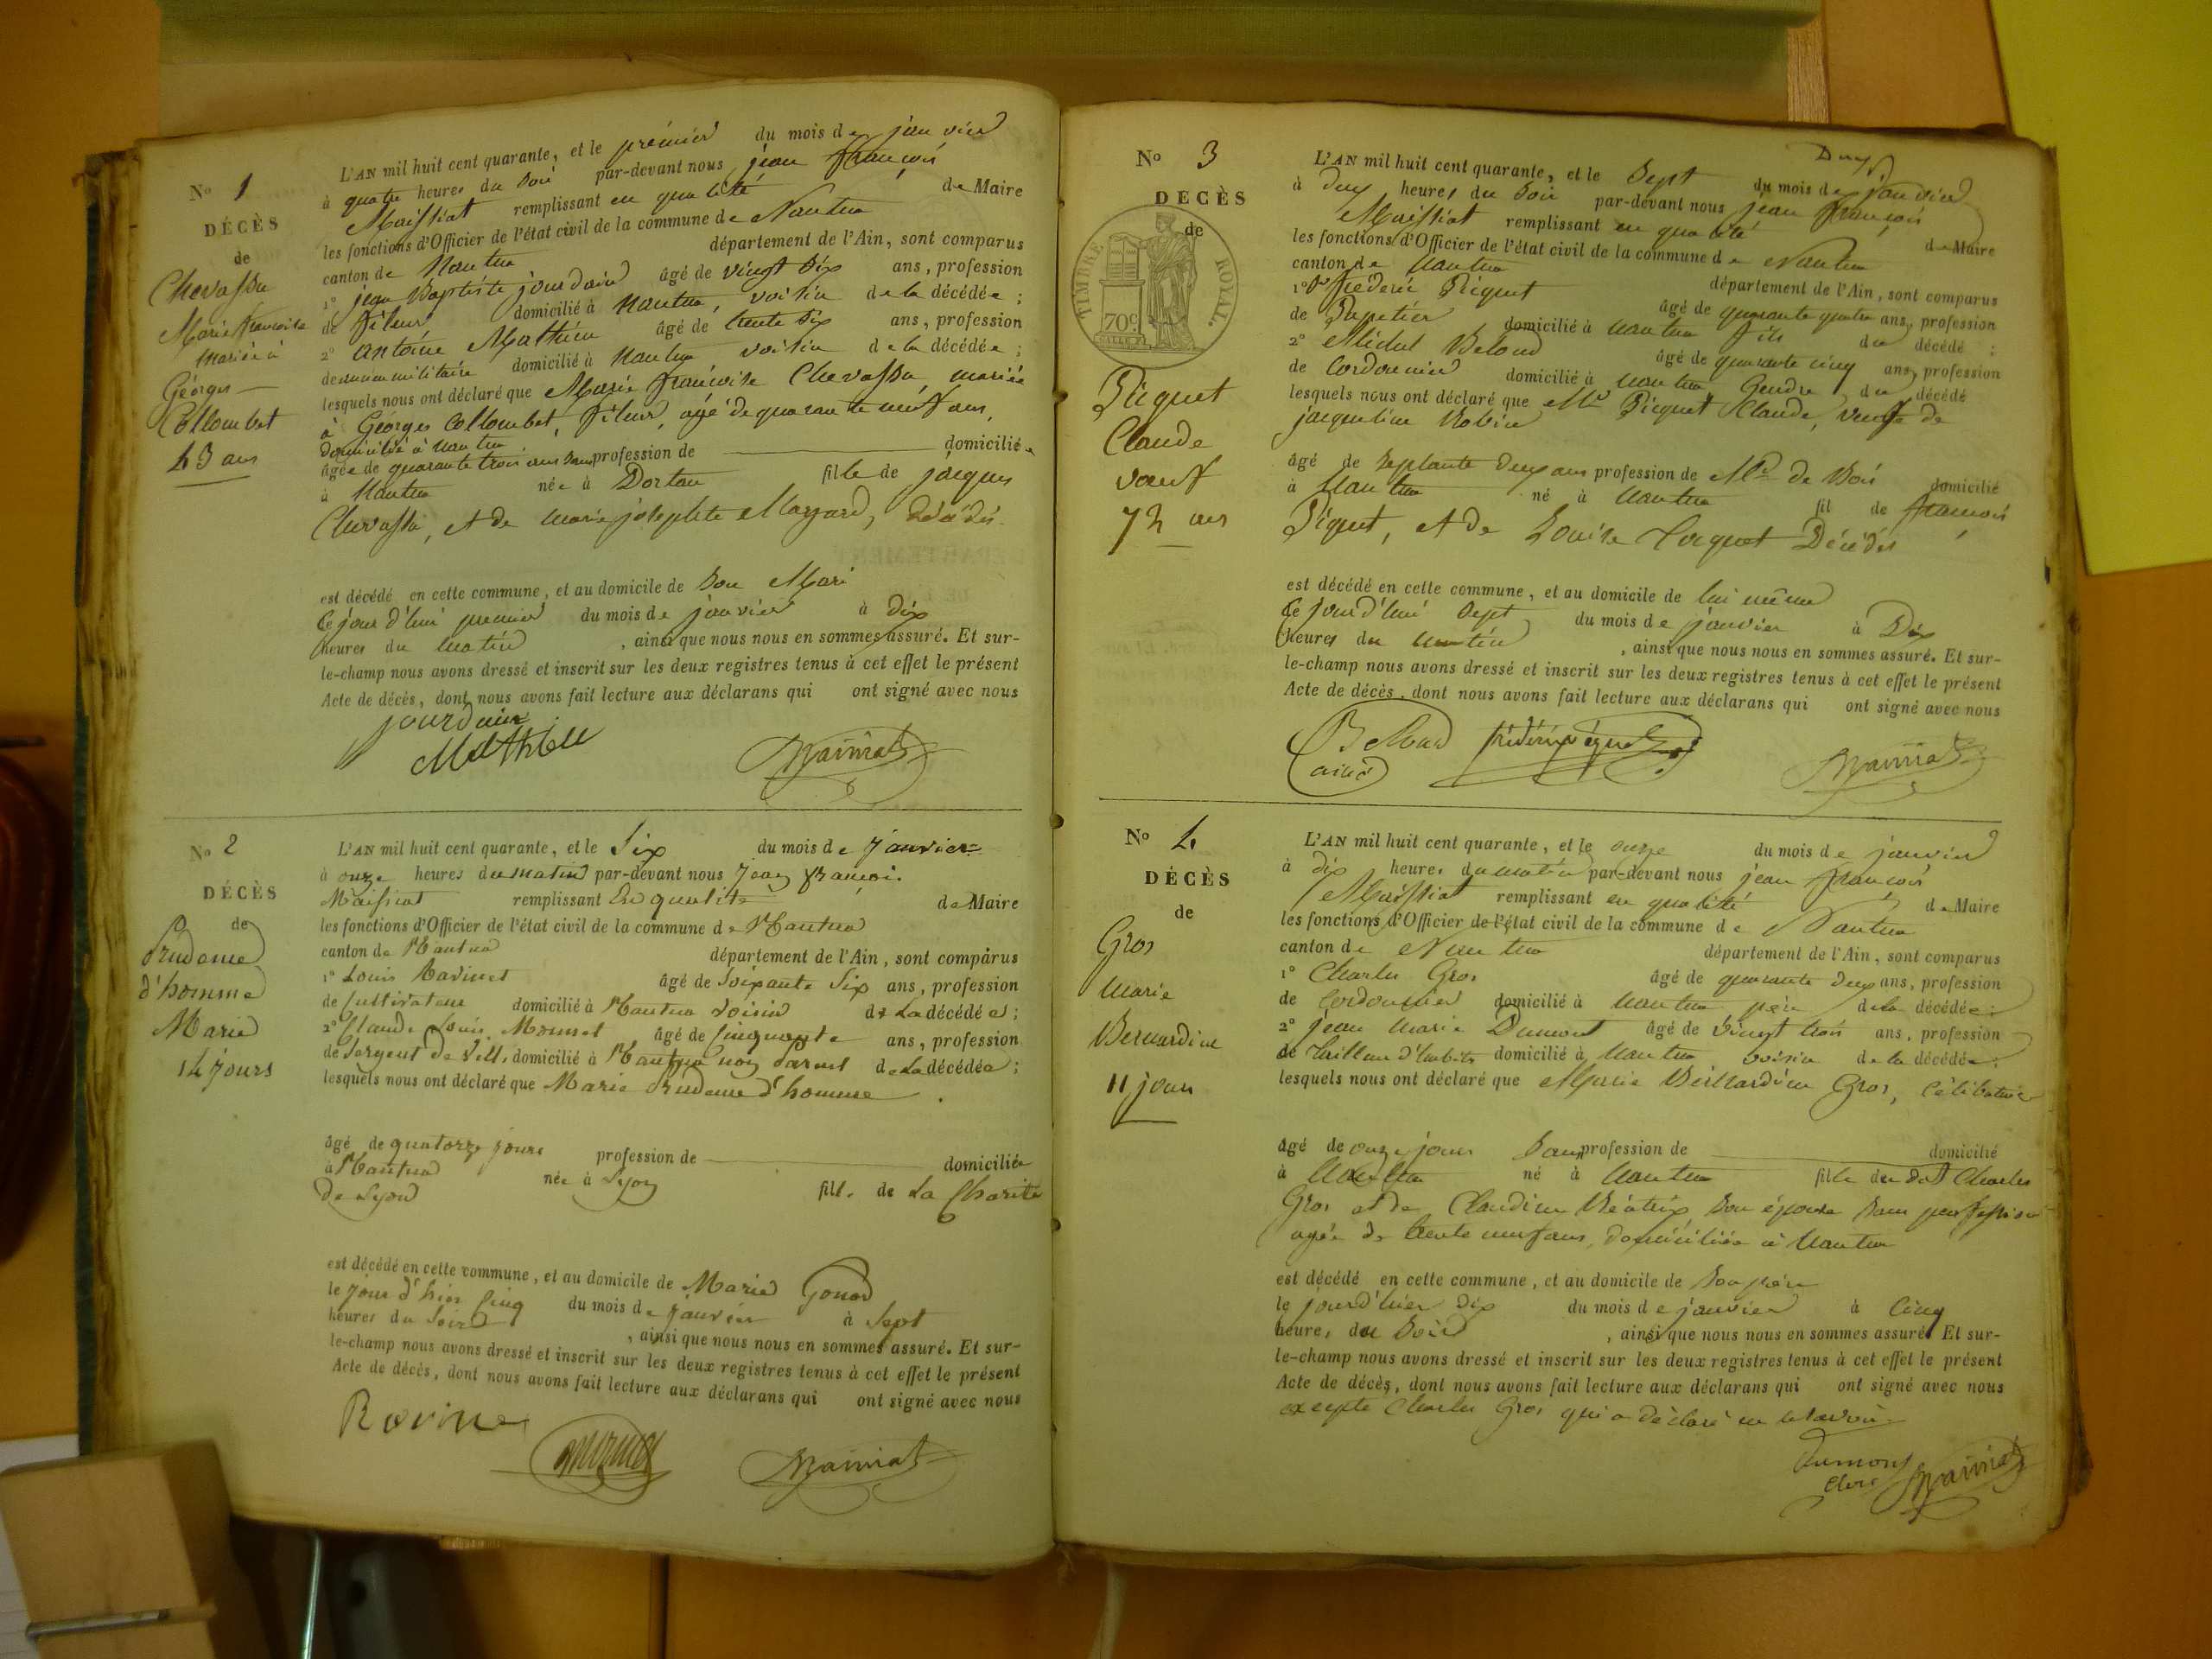 N° 1
DÉCÈS
de
Chevassu
Marie françoise
mariée à
Géorges
Collombet
43 ans
L'AN mil huit cent quarante, et le premier du mois de janvier
à quatre heures du Soir par-devant nous jean françois
Maissiat remplissant en qualité de Maire
les fonctions d'Officier de l'état civil de la commune de Nantua
canton de Nantua département de l'Ain, sont comparus
1° jean Baptiste jourdain âgé de vingt Six ans, profession
de fileur domicilié à Nantua, voisin de la décédée ;
2° antoine Mathieu âgé de trente Six ans, profession
militaire domicilié à Nantua voisin de la décédée ;
lesquels nous ont déclaré que Marie françoise Chevassu mariée
à Géorges Collombet, fileur, agé de quarante neuf ans,
domicilié à Nantua
âgée de quarante trois ans Sans profession de domiciliée
à Nantua née à Dortan fille de jacques
Chevassu, et de marie josephte Mazard, décédés
est décédé en cette commune, et au domicile de Son Mari
Ce jour d'hui premier du mois de janvier à dix
heures du matin , ainsi que nous nous en sommes assuré. Et sur-
le-champ nous avons dressé et inscrit sur les deux registres tenus à cet effet le présent
Acte de décès, dont nous avons fait lecture aux déclarans qui ont signé avec nous
jourdain
Mathieu
Maissiat
N° 2
DÉCÈS
de
Prudome
d'homme
Marie
14 jours
L'AN mil huit cent quarante, et le Six du mois de janvier
à onze heures du matin par-devant nous Jean françois
Maissiat remplissant En qualité de Maire
les fonctions d'Officier de l'état civil de la commune de Nantua
canton de Nantua département de l'Ain, sont comparus
1° Louis Ravinet âgé de Soixante Six ans, profession
de Cultivateur domicilié à Nantua voisin de La décédée ;
2° Claude Louis Monnet âgé de Cinquante ans, profession
de Sergent de Ville domicilié à Nantua non parent de La décédée ;
lesquels nous ont déclaré que Marie Prudome d'homme
âgé de quatorze jours profession de domiciliée
à Nantua née à Lyon fille de La Charité
de Lyon
est décédé en cette commune, et au domicile de Marie Gonod
le jour d'hier Cinq du mois de janvier à Sept
heures du Soir , ainsi que nous nous en sommes assuré. Et sur-
le-champ nous avons dressé et inscrit sur les deux registres tenus à cet effet le présent
Acte de décès, dont nous avons fait lecture aux déclarans qui ont signé avec nous
Ravinet
Maissiat
N° 3
DÉCÈS
de
TIMBRE ROYAL.
70c
Picquet
Claude
veuf
72 ans
L'AN mil huit cent quarante, et le Sept du mois de janvier
à deux heures du Soir par-devant nous jean françois
Maissiat remplissant en qualité de Maire
les fonctions d'Officier de l'état civil de la commune de Nantua
canton de Nantua département de l'Ain, sont comparus
1° frederic Picquet âgé de quarante quatre ans, profession
de Papetier domicilié à Nantua fils du décédé ;
2° Michel Beloud âgé de quarante cinq ans, profession
de Cordonnier domicilié à Nantua Gendre du décédé
lesquels nous ont déclaré que Picquet Claude, veuf de
jacqueline Robin
âgé de Septante deux ans profession de Md de Bois domicilié
à Nantua né à Nantua fil de françois
Piquet, et de Louise Décédés
est décédé en cette commune, et au domicile de lui même
Ce jour d'hui Sept du mois de janvier à Dix
heures du matin , ainsi que nous nous en sommes assuré. Et sur-
le-champ nous avons dressé et inscrit sur les deux registres tenus à cet effet le présent
Acte de décès, dont nous avons fait lecture aux déclarans qui ont signé avec nous
Beloud
ainé
Maissiat
N° 4
DÉCÈS
de
Gros
Marie
Bernardine
11 jours
L'AN mil huit cent quarante, et le onze du mois de janvier
à dix heures du matin par-devant nous jean françois
Maissiat remplissant en qualité de Maire
les fonctions d'Officier de l'état civil de la commune de Nantua
canton de Nantua département de l'Ain, sont comparus
1° Charles Gros âgé de quarante deux ans, profession
de Cordonnier domicilié à Nantua père de la décédée ;
2° jean marie Dumont âgé de vingt trois ans, profession
de Tailleur d'habits domicilié à Nantua voisin de la décédée ;
lesquels nous ont déclaré que Marie Bernardine Gros, Célibataire
âgé de onze jours Sans profession de domicilié
à Nantua né à Nantua fille du dit Charles
Gros et de Claudine Béatrix Son épouse Sans profession
agée de trente neuf ans, domiciliée à Nantua
est décédé en cette commune, et au domicile de Son père
le jour d'hier dix du mois de janvier à Cinq
heures du Soir , ainsi que nous nous en sommes assuré. Et sur-
le-champ nous avons dressé et inscrit sur les deux registres tenus à cet effet le présent
Acte de décès, dont nous avons fait lecture aux déclarans qui ont signé avec nous
excepté Charles Gros qui a déclaré ne le savoir
Dumont
Maissiat